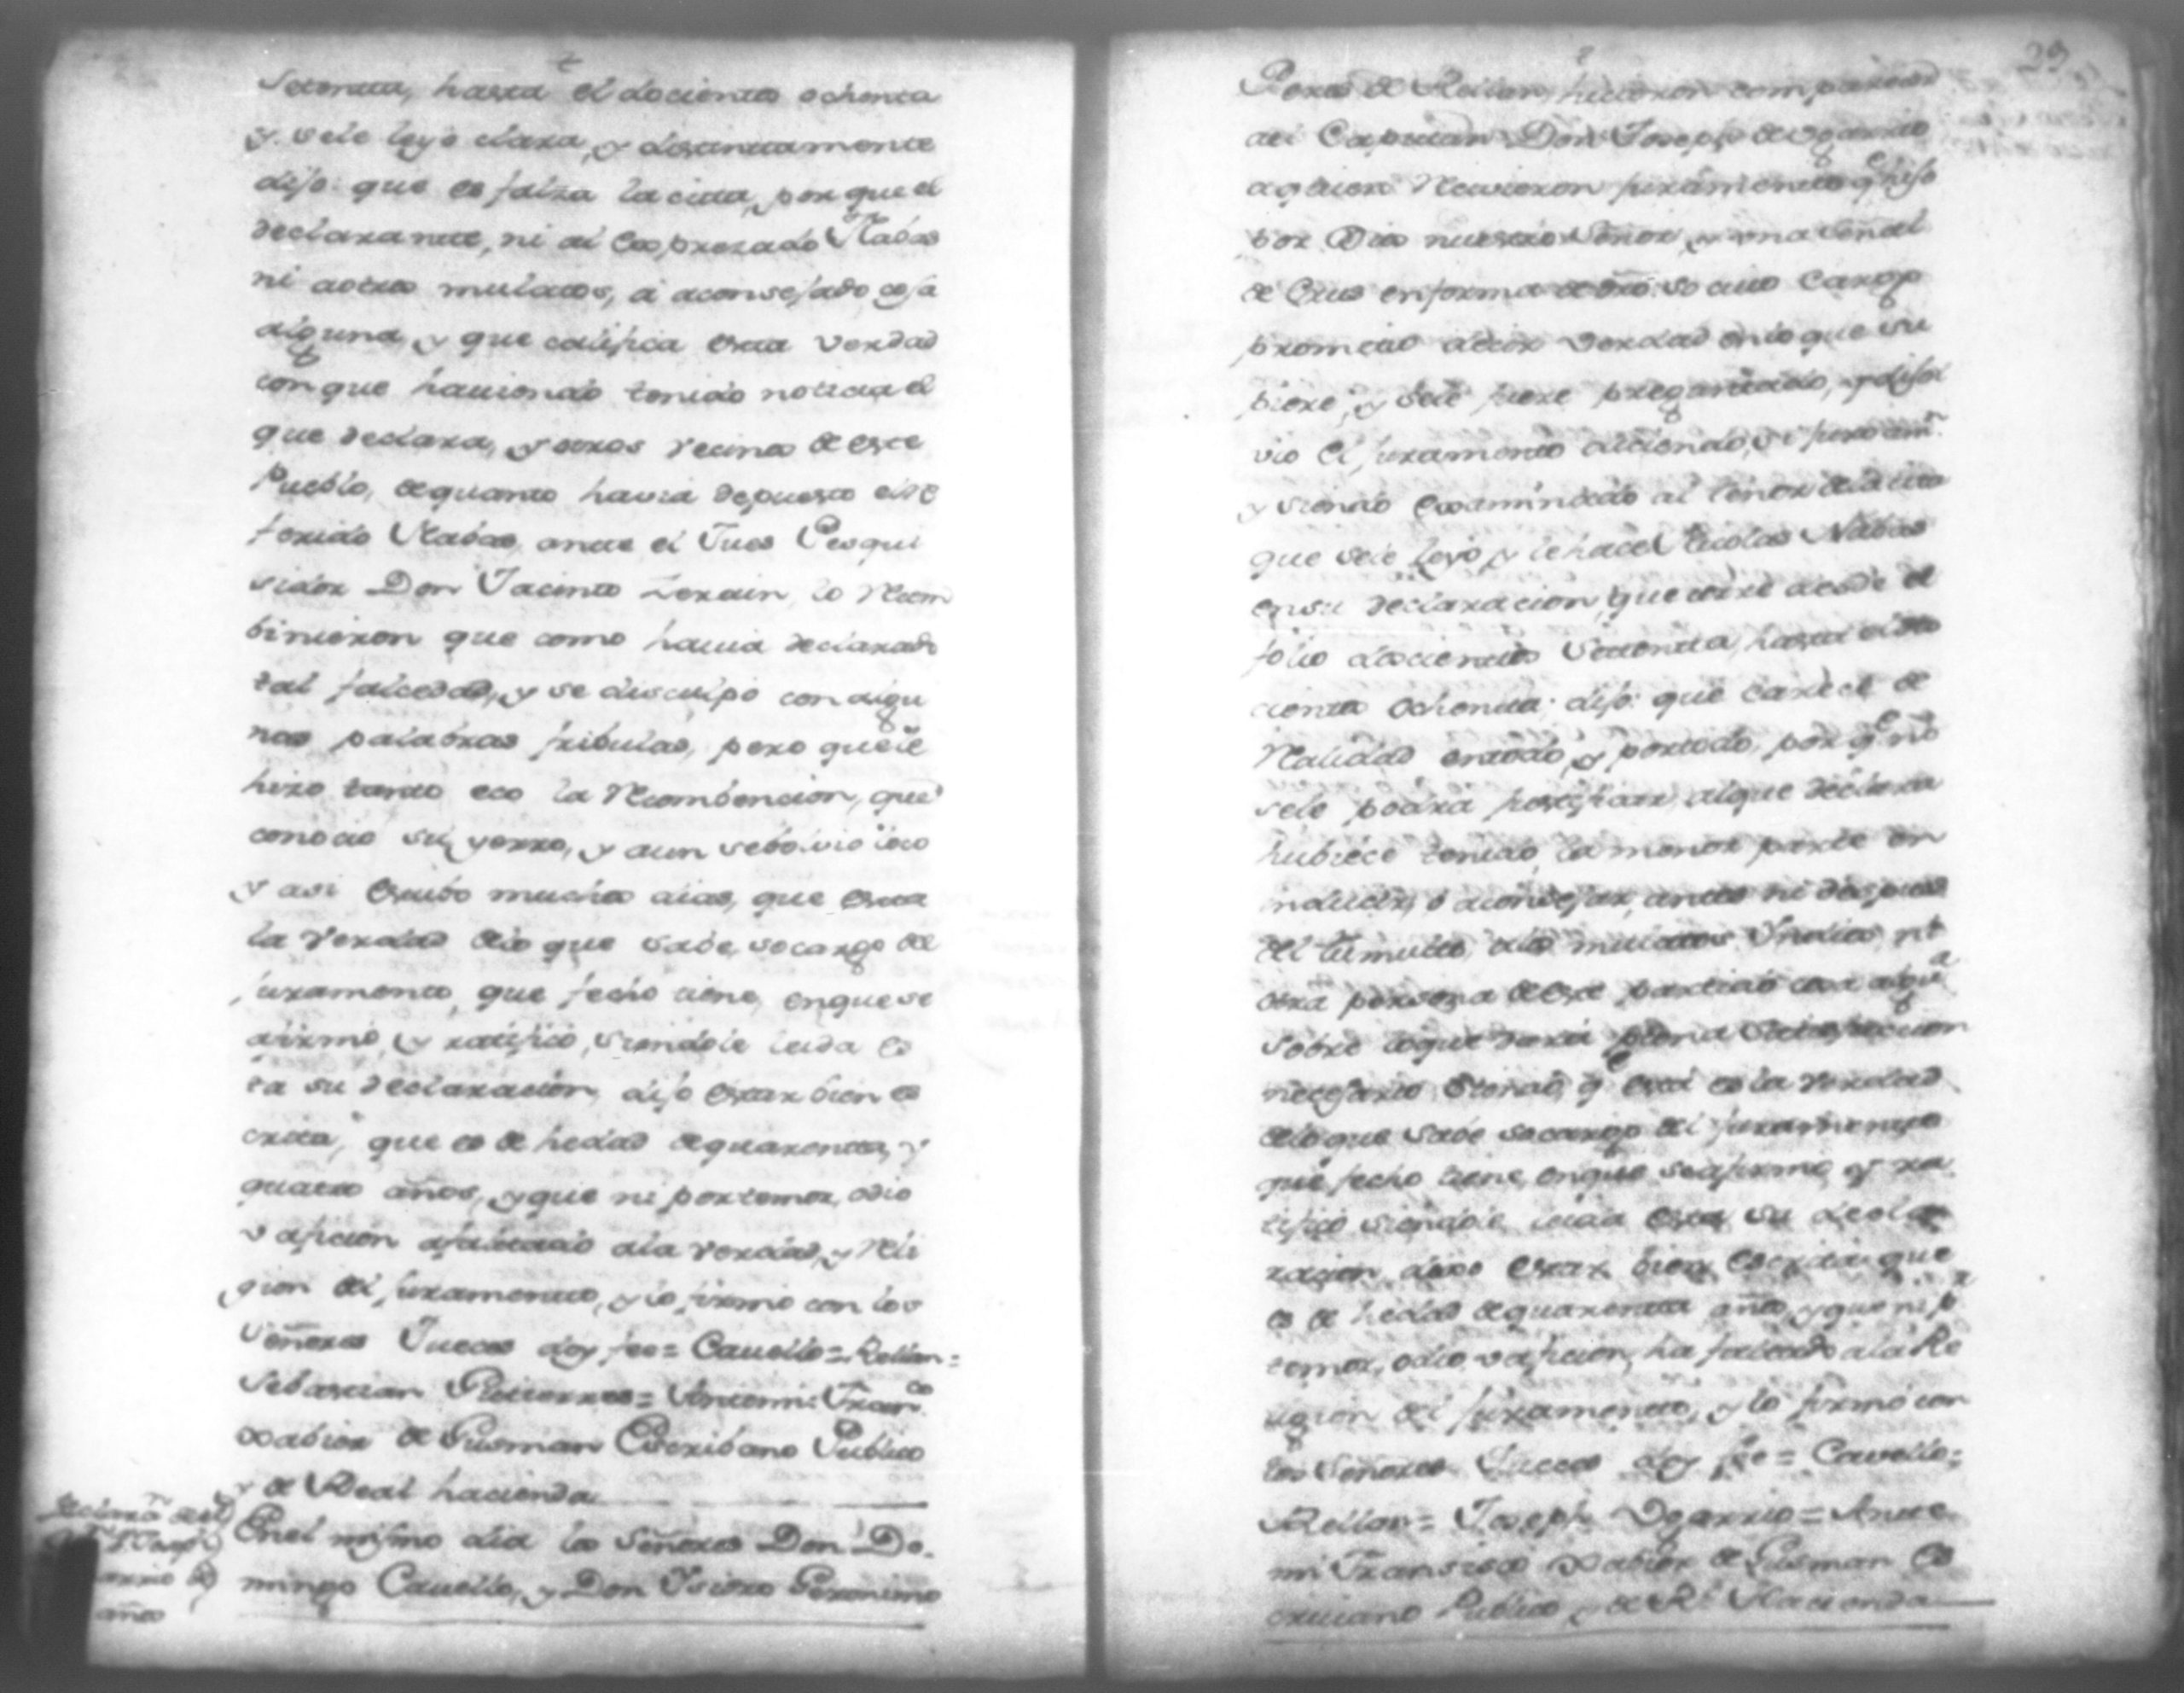 Setenta, hasta el docientos ochenta
y sele leyo clara, y distintamente
dijo: que es falza la cita, porque el
declarante, ni al expresado Nabas
ni aotros mulatos, á aconsejado cosa
alguna, y que califica esta verdad
con que haviendo tenido noticia el
que declara, y otros vecinos de este
Pueblo, de quanto havia depuesto el re
ferido Nabas, ante el Jues Pesqui
sidor Don Jacinto, lo Recom
binieron que como havia declarado
tal falcedad, y se disculpo con algu
nas palabras fribulas, pero que le
hizo tanto eco la Recombencion, que
conocio su yerro, y aun sebolvio loco
y asi estubo muchos dias, que esta
la verdad delo que save, socargo del
juramento, que fecho tiene, enquese
afirmó, y ratificó, siendole leida es
ta su declaracion, dijo estar bien es
crita, que es de hedad de quarenta, y
quatro años, y que ni por temor, odio
v aficion afaltado ala verdad, y Reli
gion del juramento, y lo firmó con los
Señores Jueces doy fee = Cauello = Rellan =
Sebastian Gutierres = Antemi: Franco.
Xabier de Gusman Escribano Publico
y de Real hacienda
Enel mismo dia los Señores Don Do-
mingo Cauello, y Don Isidro Geronimo
años
29
Peres de Rellan, hicieron comparecer
al Capitan Don Joseph de Ogarrio
aquien Recivieron juramento q.e hiso
por Dios nuestro Señor, y una señal
de Crus enforma de dro. so cuio Cargo
prometio decir verdad enlo que su
piere, y sele fuere preguntado,
vio el juramento diciendo, si juro amn.
y siendo examinado al tenor dela cita
que sele leyo y le hace Nicolas Nabas
ensu declaracion, que corre desde el
folio docientos Setenta, hasta el do
cientos ochenta: dijo: que carece de
Realidad entodo, y portodo, por q.e no
sele podra justificar, alque declara
hubiece tenido la menor parte en
inducir, ó aconsejar, antes ni despues
del tumulto, alos mulatos, Indios, ni
otra persona de este partido cosa algu.a
sobre loque dara plena satisfaccion
necesario siendo, q.e esta es la verdad
delo que save socargo del juramento
que fecho tiene, enque seafirmo, y ra
tificó siendole leida esta su decla
racion, dijo estar bien escrita: que
es de hedad de quarenta años, y que ni p.r
temor, odio, v aficion, ha faltado ala Re
ligion del juramento, y lo firmó con
los Señores Jueces doy fee = Cavello =
Rellan = Joseph Ogarrio = Ante
mi Fransisco Xabier de Gusman Es
criuano Publico, y de Rl. Hacienda